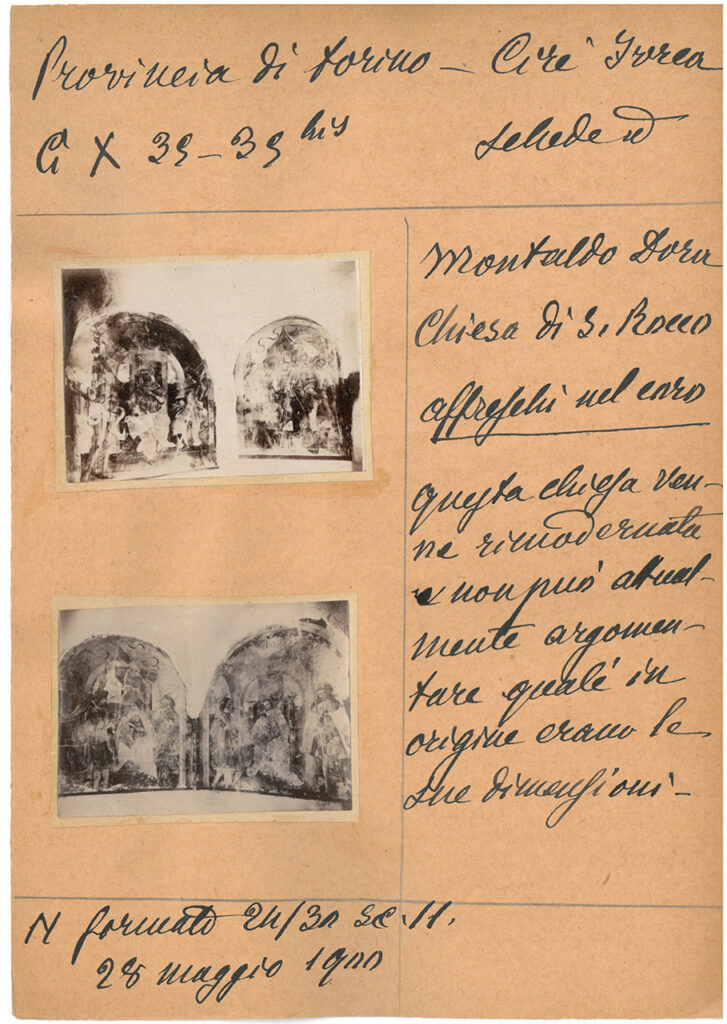 Provincia di Torino - Circ Ivrea
G X 39-39 bis
schede
Montaldo Dora
Chiesa di S. Rocco
affreschi nel coro
questa chiesa ven-
ne rimodernata
e non può attual-
mente argomen-
tare quali in
origine erano le
sue dimensioni-
N formato 24/30 sc. 11.
28 maggio 1900